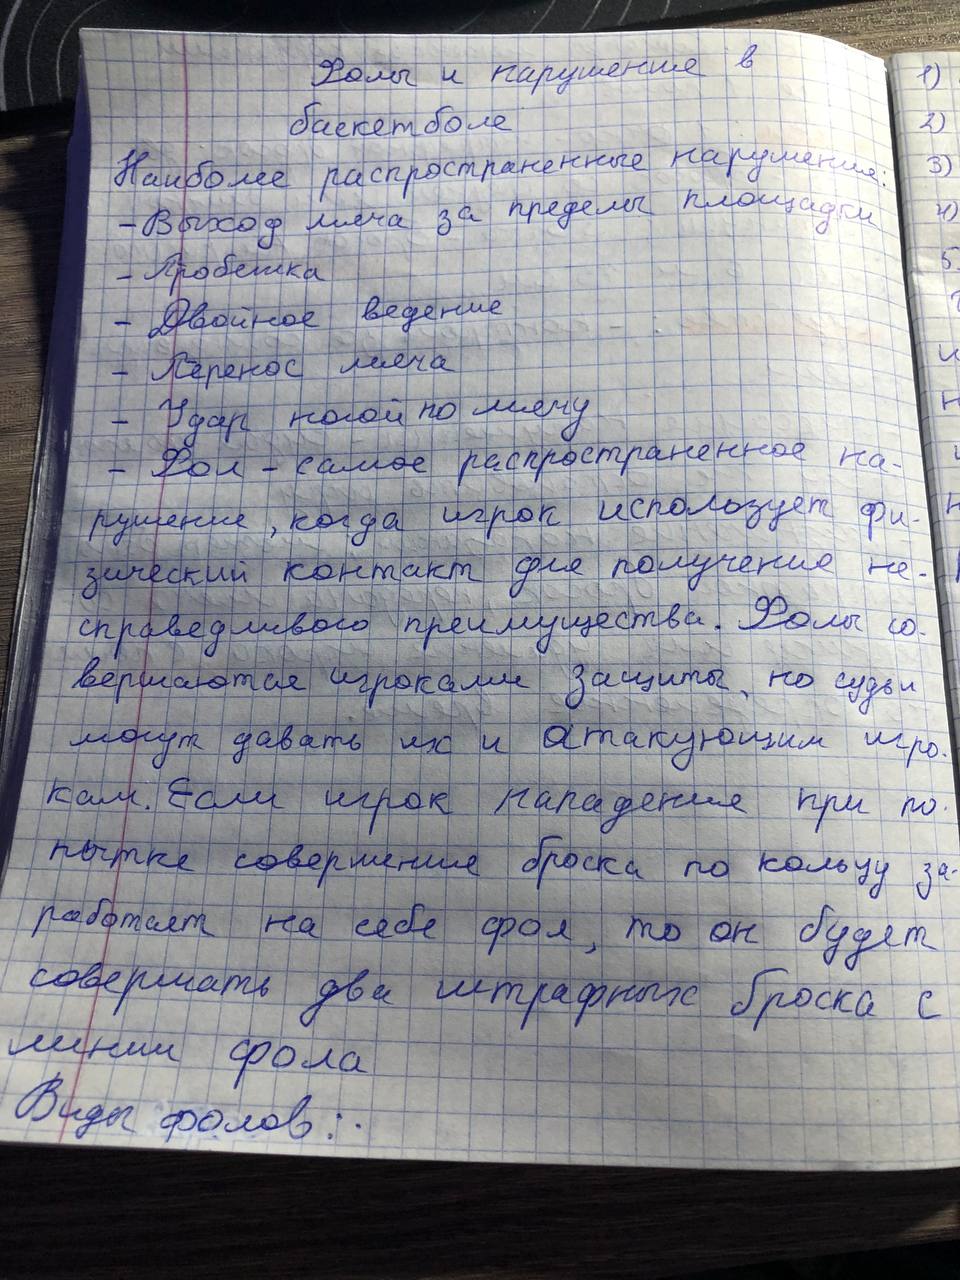 Фолы и нарушение в
баскетболе
Наиболее распространенные нарушения:
- Выход мяча за пределы площадки
- Пробежка
- Двойное ведение
- Перенос мяча
- Удар ногой по мячу
- Фол - самое распространенное на-
рушение, когда игрок использует фи-
зический контакт для получения не-
справедливого преимущества. Фолы со-
вершаются игроками защиты, но судьи
могут давать их и атакующим игро-
кам. Если игрок нападения при по-
пытке совершение броска по кольцу за-
работает на себе фол, то он будет
совершать два штрафных броска с
линии фола
Виды фолов:
1)
2)
3)
4)
5)